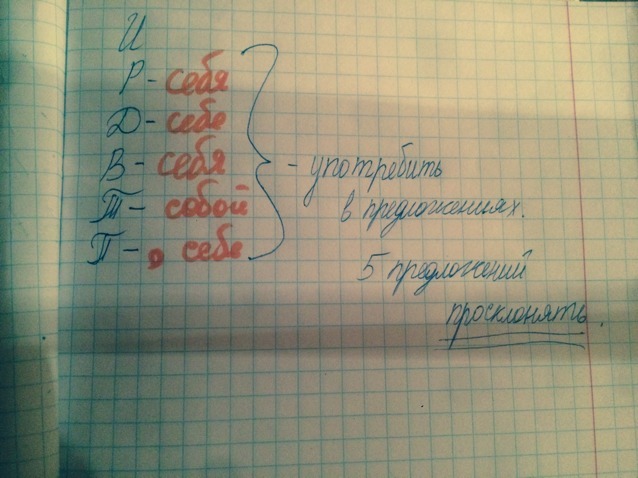 И
Р - себя
Д - себе
В - себя
Т - собой
П - о себе
- употребить
в предложениях.
5 предложений
просклонять.